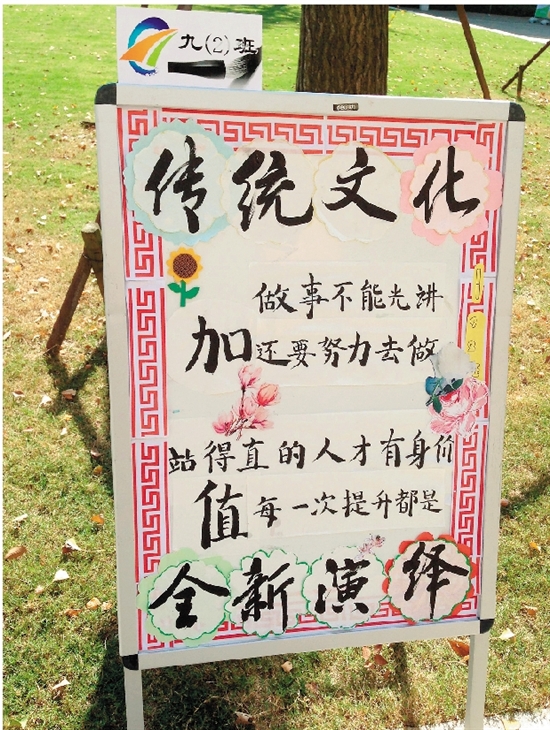 九(2)班
传统文化
做事不能光讲
加还要努力去做
站得直的人才有身价
值每一次提升都是
全新演绎